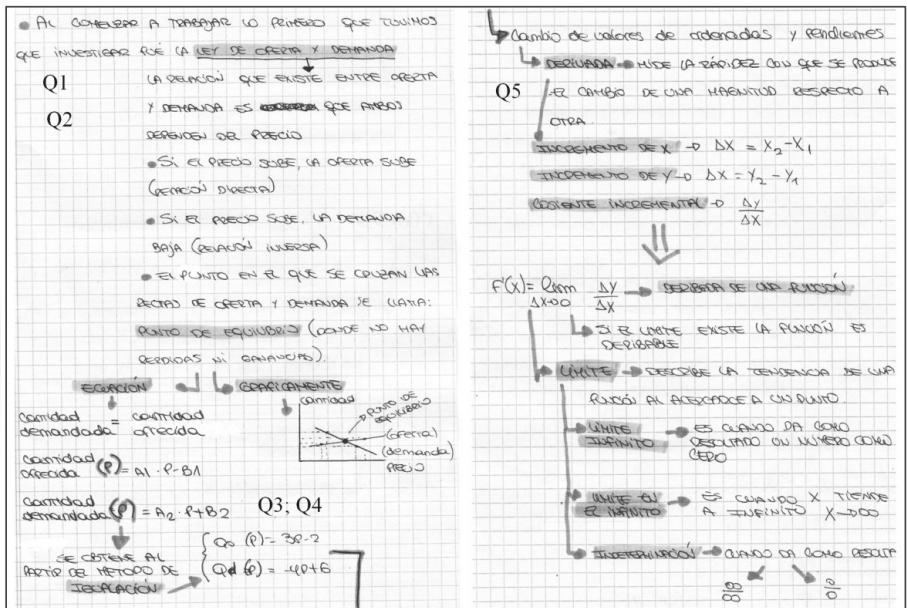 • AL COMENZAR A TRABAJAR LO PRIMERO QUE TUVIMOS
QUE INVESTIGAR FUÉ LA LEY DE OFERTA Y DEMANDA
Q1
LA RELACIÓN QUE EXISTE ENTRE OFERTA
Q2
Y DEMANDA ES QUE AMBOS
DEPENDEN DEL PRECIO
• Si El PRECIO SUBE, LA OFERTA SUBE
(RELACIÓN DIRECTA)
• Si El PRECIO SUBE, LA DEMANDA
BAJA (RELACIÓN INVERSA)
• El PUNTO EN EL QUE SE CRUZAN LAS
RECTAS DE OFERTA Y DEMANDA SE LLAMA:
PUNTO DE EQUILIBRIO (DONDE NO HAY
PERDIDAS Ni GANANCIAS).
ECUACIÓN
GRAFICAMENTE
cantidad demandada = cantidad ofrecida
cantidad
PUNTO DE EQUILIBRIO
(oferta)
(demanda)
PRECIO
cantidad ofrecida (P) = A1 · P - B1
cantidad demandada (P) = A2 · P + B2
Q3; Q4
SE OBTIENE AL
PARTIR DEL METODO DE
IGUALACIÓN
Qo (P) = 3P-2
Qd (P) = -4P+6
Cambio de valores de ordenadas y pendientes
DERIVADA → MIDE LA RÁPIDEZ CON QUE SE PRODUCE
Q5
EL CAMBIO DE UNA MAGNITUD RESPECTO A
OTRA.
INCREMENTO DE X → ΔX = X2 - X1
INCREMENTO DE Y → ΔX = Y2 - Y1
COSIENTE INCREMENTAL → ΔY/ΔX
F'(X) = lim ΔX→0 ΔY/ΔX → DERIBADA DE UNA FUNCIÓN
SI EL LIMITE EXISTE LA FUNCIÓN ES
DERIBABLE
LÍMITE → DESCRIBE LA TENDENCIA DE UNA
FUNCIÓN AL ACERCARCE A UN PUNTO.
LIMITE INFINITO → ES CUANDO DA COMO
RESULTADO UN NÚMERO COMO
CERO
LIMITE EN EL INFINITO → ES CUANDO X TIENDE
A INFINITO X→∞
INDETERMINACIÓN → CUANDO DA COMO RESULTA
∞/∞ 0/0